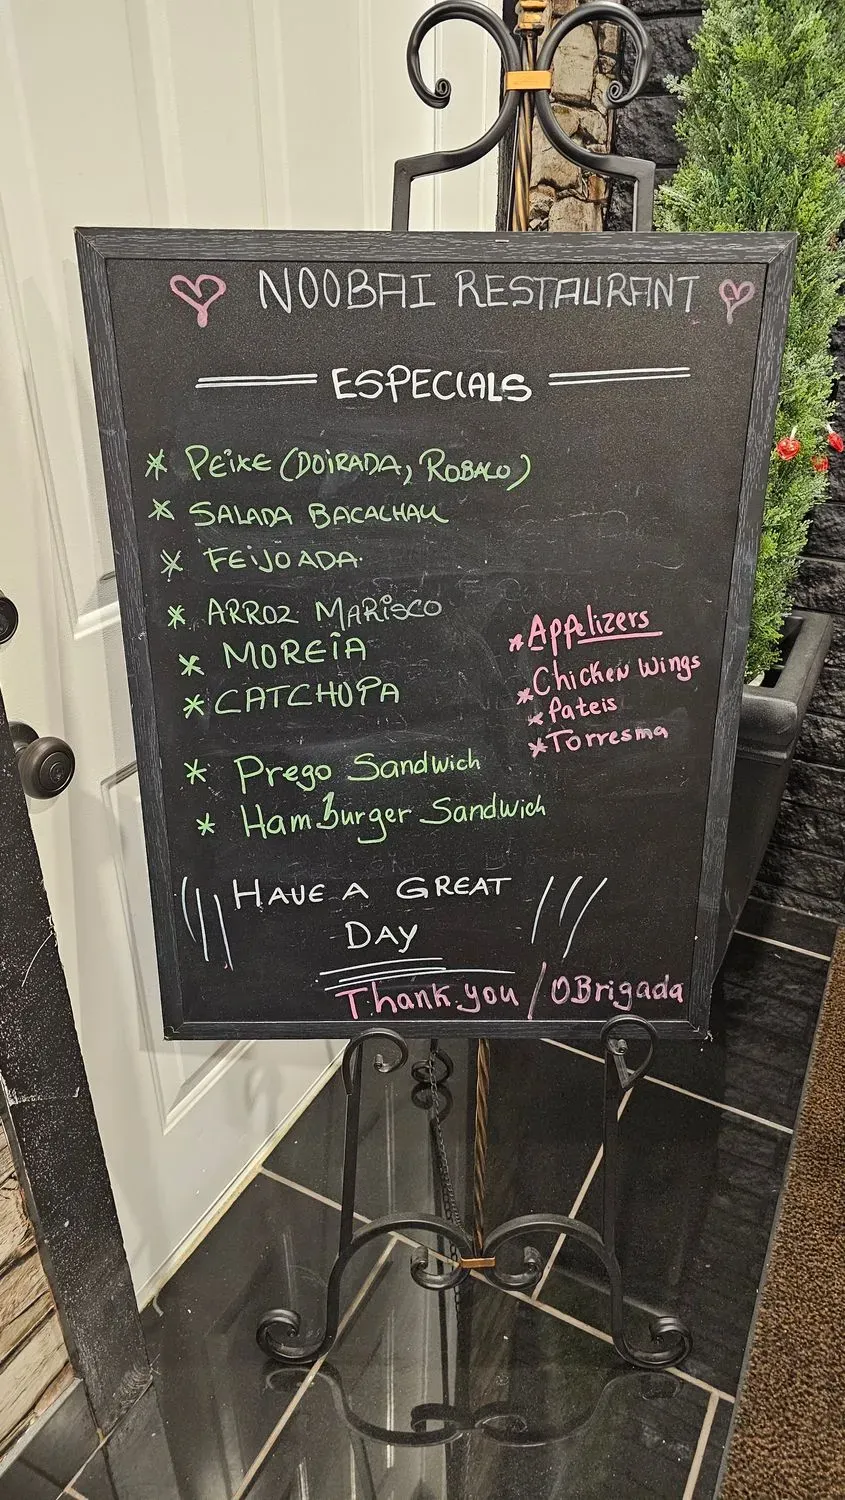 NOOBAI RESTAURANT
ESPECIALS
* PEIXE (DOIRADA, ROBALO)
* SALADA BACALHAU
* FEIJOADA
* ARROZ MARISCO
* MOREIA
* CATCHUPA
* Appetizers
* Chicken Wings
* Pateis
* Torresma
* Prego Sandwich
* Hamburger Sandwich
HAVE A GREAT
DAY
Thank you / OBrigada